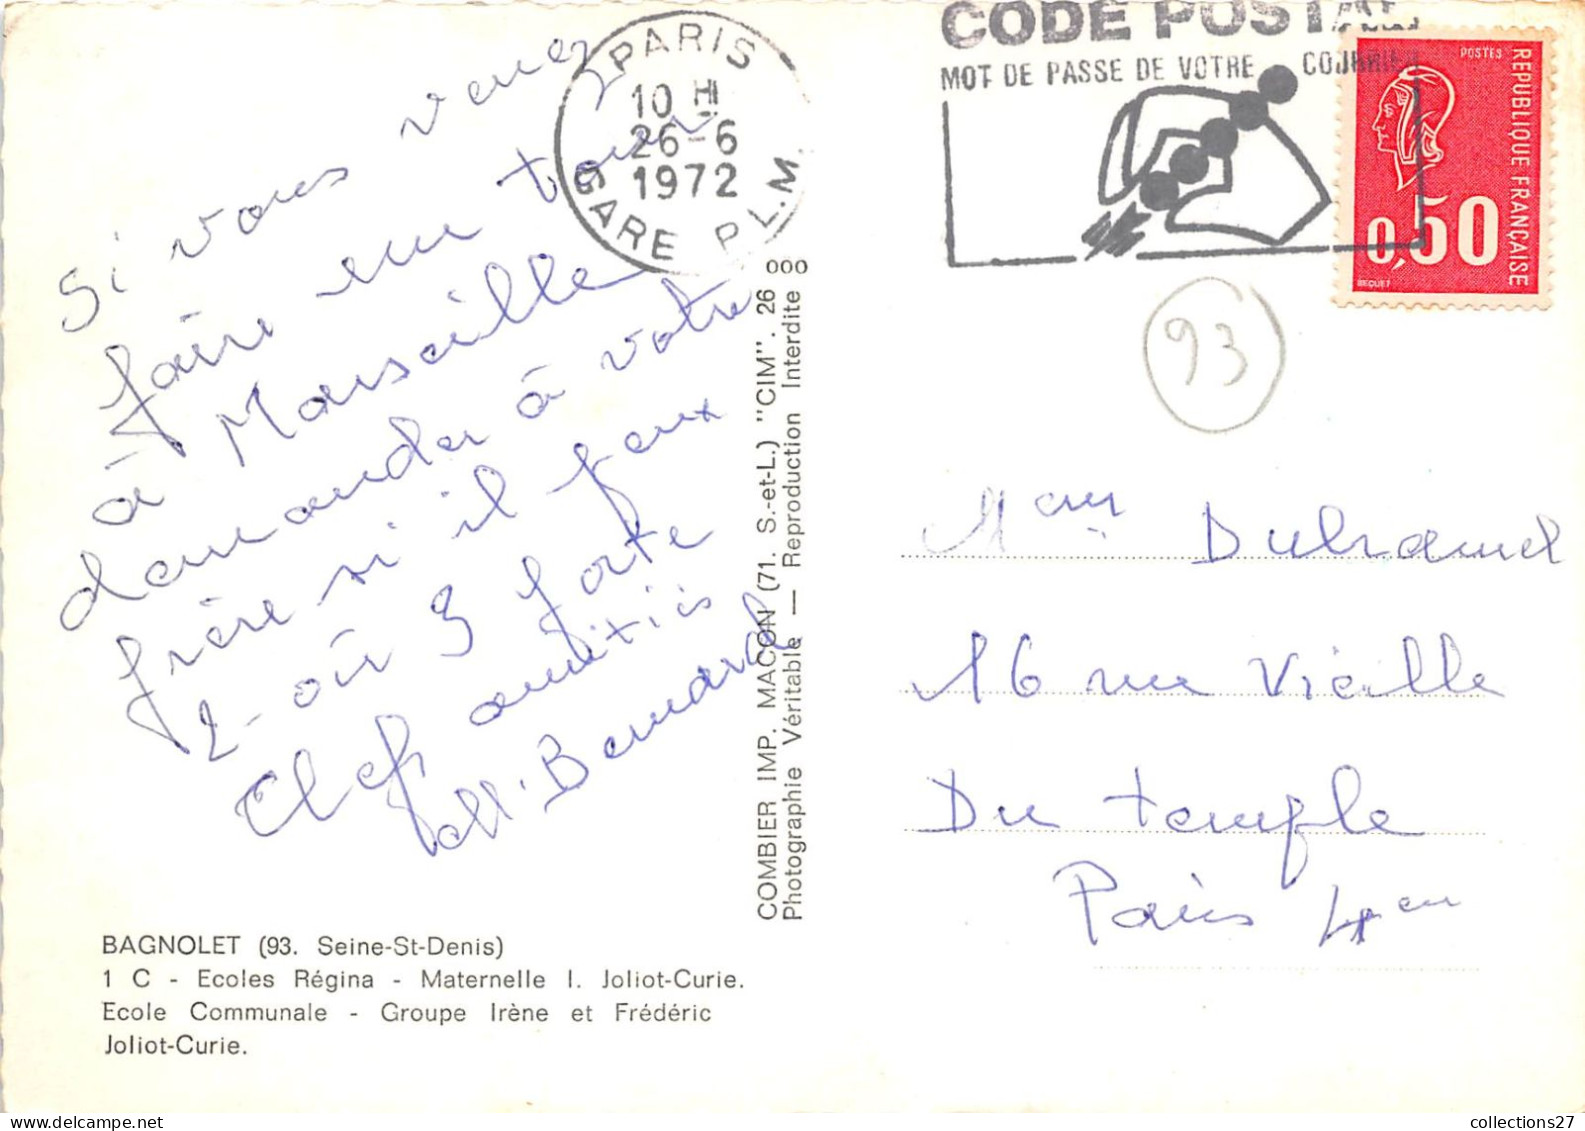 Si vous venez
faire un tour
à Marseille
demander à votre
frère si il faux
2 - où 3 forte
Clefs
amitiés
Bernard
PARIS
10 H
26-6
1972
GARE P.L.M.
CODE POSTAL
MOT DE PASSE DE VOTRE COURRIER
POSTES
REPUBLIQUE FRANÇAISE
0,50
BEQUET
93
000
COMBIER IMP. MACON (71. S.-et-L.) "CIM". 26
Photographie Véritable — Reproduction Interdite
Duhamel
16 rue Vieille
Du temple
Paris 4em
BAGNOLET (93. Seine-St-Denis)
1 C - Ecoles Régina - Maternelle I. Joliot-Curie.
Ecole Communale - Groupe Irène et Frédéric
Joliot-Curie.
collections27